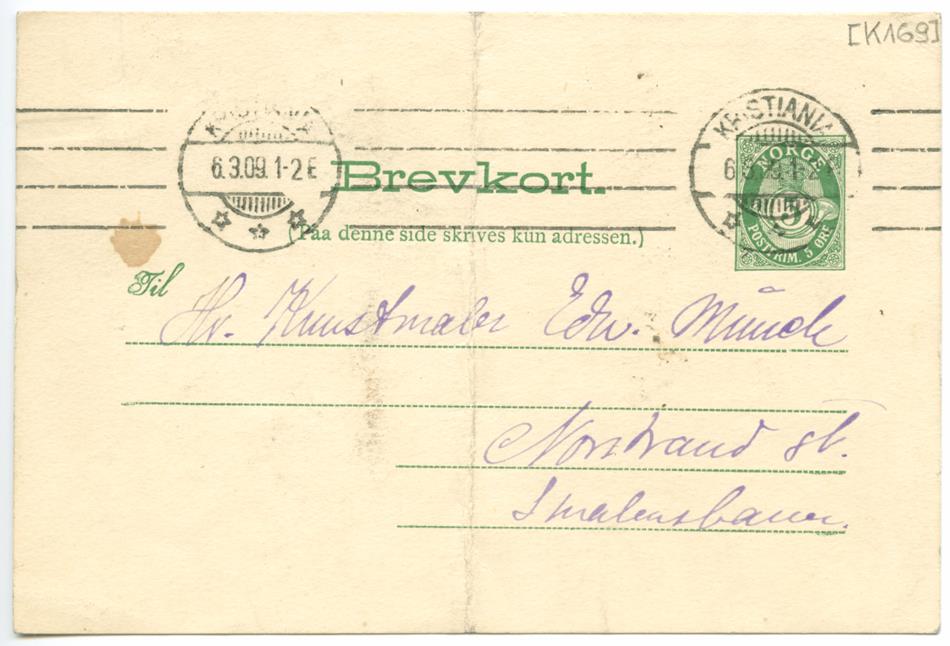 [K169]
KRISTIANIA
6.3.09.1-2 E
KRISTIANIA
6.3.09.1-2
NORGE
5
POSTFRIM. 5 ØRE
Brevkort.
(Paa denne side skrives kun adressen.)
Til
Hr. Kunstmaler Edv. Munch
Norstrand st.
Smalensbanen.